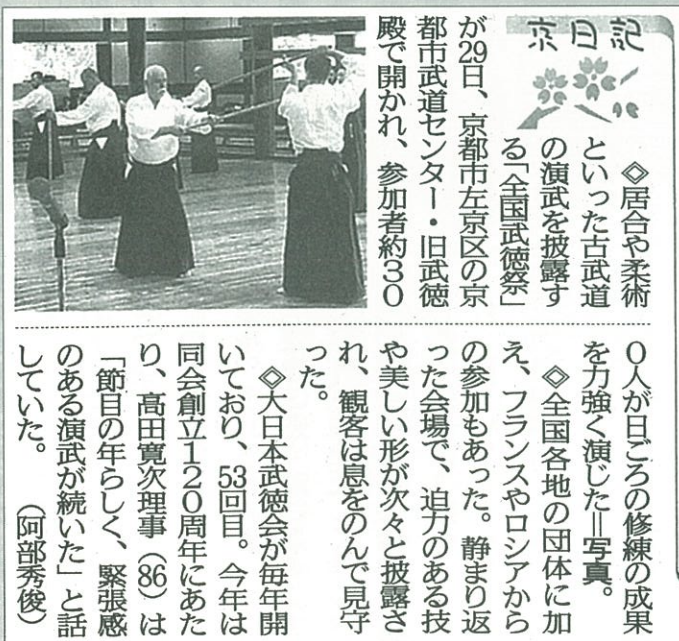 京日記
◇居合や柔術
といった古武道
の演武を披露す
る「全国武徳祭」
が29日、京都市左京区の京
都市武道センター・旧武徳
殿で開かれ、参加者約30
0人が日ごろの修練の成果
を力強く演じた＝写真。
◇全国各地の団体に加
え、フランスやロシアから
の参加もあった。静まり返
った会場で、迫力のある技
や美しい形が次々と披露さ
れ、観客は息をのんで見守
った。
◇大日本武徳会が毎年開
いており、53回目。今年は
同会創立120周年にあた
り、高田寛次理事（86）は
「節目の年らしく、緊張感
のある演武が続いた」と話
していた。　（阿部秀俊）